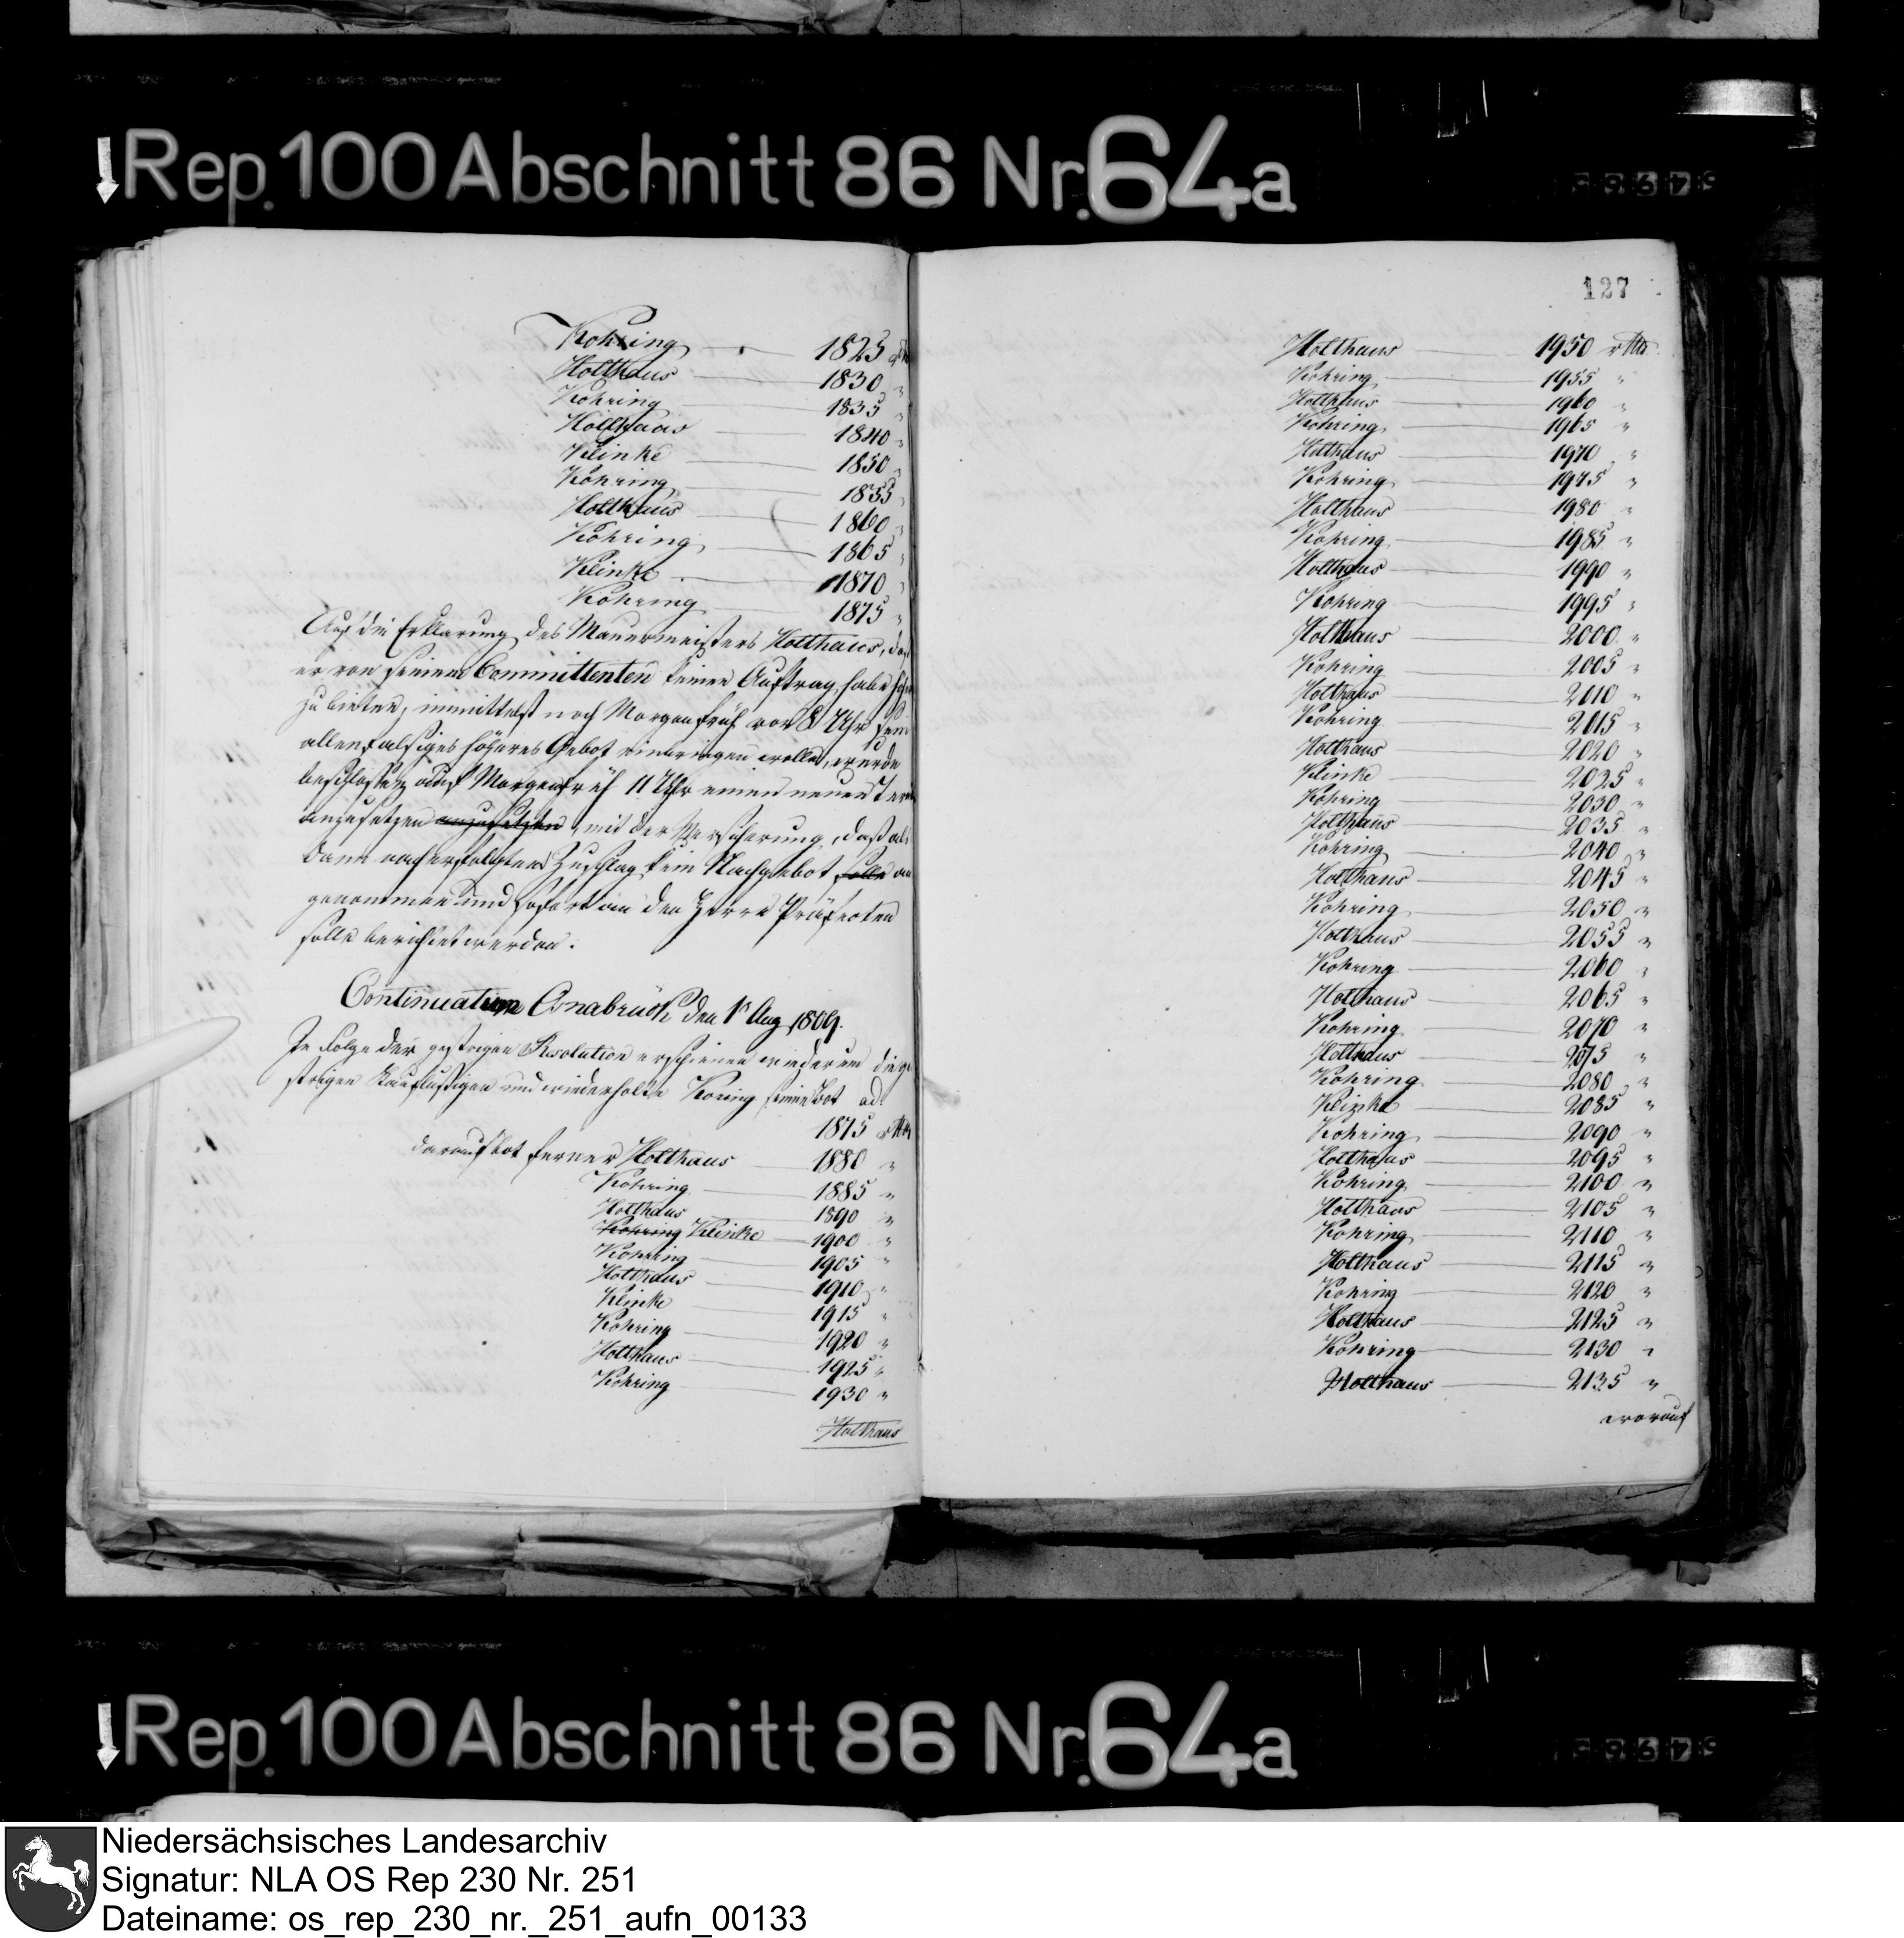 Rep. 100 Abschnitt 86 Nr. 64a
Kohring 1825 rthr
Holthaus 1830 "
Kohring 1835 "
Holthaus 1840 "
Klinke 1850 "
Kohring 1855 "
Holthaus 1860 "
Kohring 1865 "
Klinke 1870 "
Kohring 1875 "
Auf die Erklärung des Mauermeisters Holthaus, daß
er von seinen Committenten keinen Auftrag habe höher
zu bieten, inmittelst noch Morgen früh vor 8 Uhr sein
allenfalsiges höheres Gebot einbringen wolle, wurde
beschlossen auf Morgen früh 11 Uhr einen neuen Termin
anzusetzen anzusetzen, mit der Versicherung, daß als
dann nach erfolgtem Zuschlag kein Nachgebot solle an
genommen und sofort an den Herrn Präfecten
solle berichtet werden.
Continuatum Osnabrück den 1t Aug 1809.
In Folge der gestrigen Resolution erschienen wiederum die ge
strigen Kauflustigen und wiederholte Koring sein Bot ad
1875 rthr
darauf bot ferner Holthaus 1880 "
Kohring 1885 "
Holthaus 1890 "
Kohring Klinke 1900 "
Kohring 1905 "
Holthaus 1910 "
Klinke 1915 "
Kohring 1920 "
Holthaus 1925 "
Kohring 1930 "
Holthaus
127
Holthaus 1950 rthr
Kohring 1955 "
Holthaus 1960 "
Kohring 1965 "
Holthaus 1970 "
Kohring 1975 "
Holthaus 1980 "
Kohring 1985 "
Holthaus 1990 "
Kohring 1995 "
Holthaus 2000 "
Kohring 2005 "
Holthaus 2010 "
Kohring 2015 "
Holthaus 2020 "
Klinke 2025 "
Kohring 2030 "
Holthaus 2035 "
Kohring 2040 "
Holthaus 2045 "
Kohring 2050 "
Holthaus 2055 "
Kohring 2060 "
Holthaus 2065 "
Kohring 2070 "
Holthaus 2075 "
Kohring 2080 "
Klinke 2085 "
Kohring 2090 "
Holthaus 2095 "
Kohring 2100 "
Holthaus 2105 "
Kohring 2110 "
Holthaus 2115 "
Kohring 2120 "
Holthaus 2125 "
Kohring 2130 "
Holthaus 2135 "
worauf
Rep. 100 Abschnitt 86 Nr. 64a
Niedersächsisches Landesarchiv
Signatur: NLA OS Rep 230 Nr. 251
Dateiname: os_rep_230_nr._251_aufn_00133